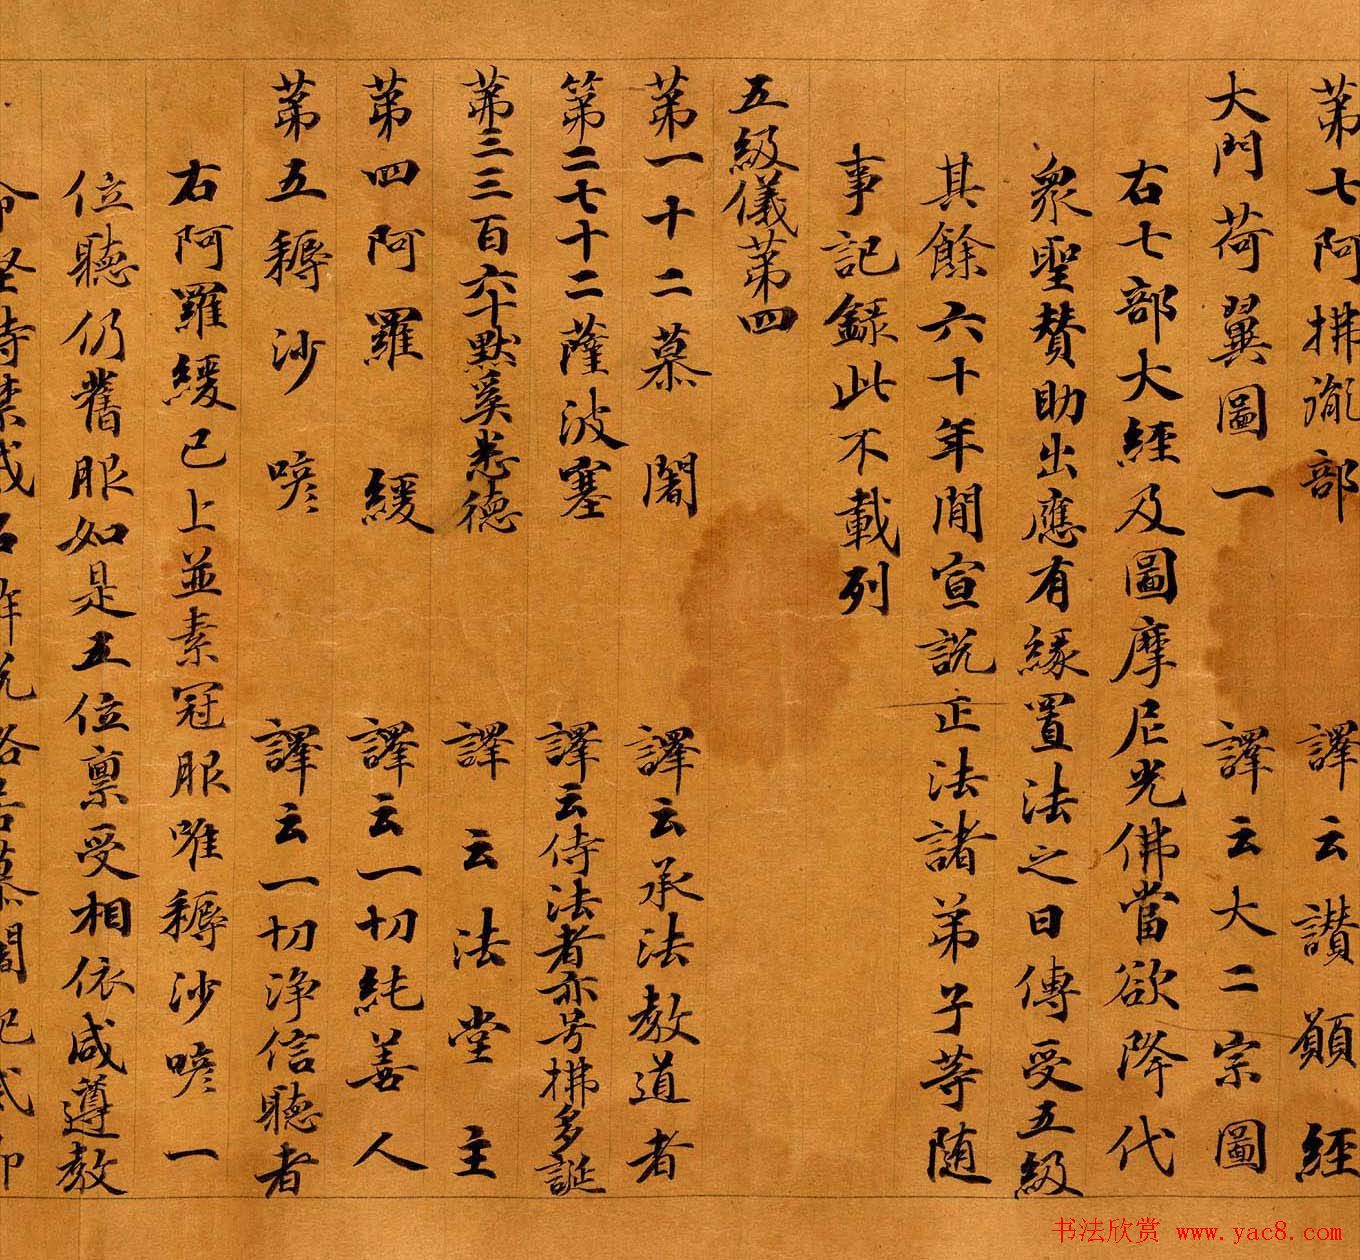 第七阿拂胤部 譯云讚願經
大門荷翼圖一 譯云大二宗圖
右七部大經及圖摩尼光佛當欲降代
衆聖賛助出應有緣置法之日傳受五級
其餘六十年間宣説正法諸弟子等随
事記録此不載列
五級儀第四
第一十二慕闍 譯云承法教道者
第二七十二薩波塞 譯云侍法者亦号拂多誕
第三三百六十默奚悉德 譯云法堂主
第四阿羅緩 譯云一切純善人
第五耨沙喭 譯云一切浄信聽者
右阿羅緩已上並素冠服唯耨沙喭一
位聽仍舊服如是五位禀受相依咸遵教
命堅持禁戒
书法欣赏 www.yac8.com